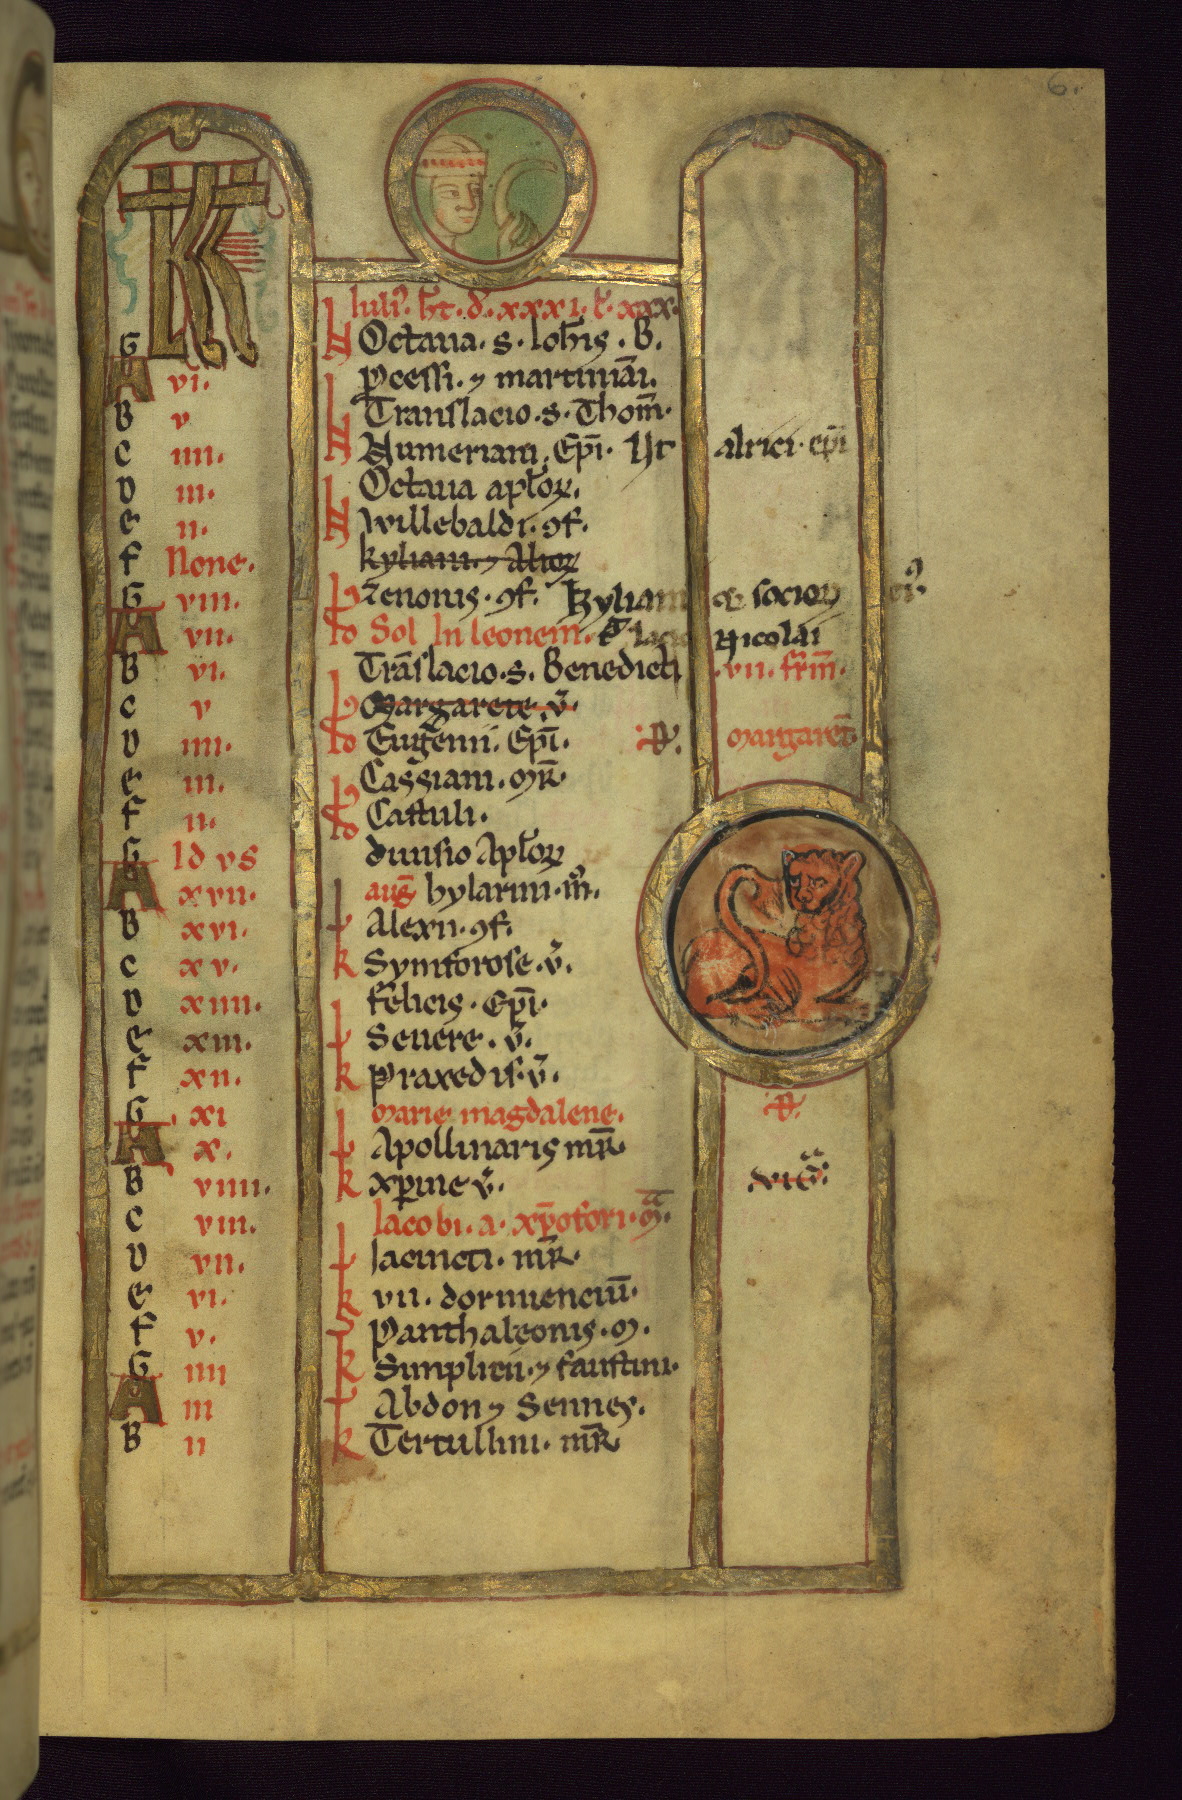 6.
KL
Iuli᷒. ht̄. d̄. xxxi. l̄. xxx.
G Octaua. s. Ioh̄is. B.
A vi. ꝓcessi. ⁊ martiniāi.
B v Translacio. s. Thom̄.
C iiii. Numeriani. Ep̄i. alrici. ep̄i
D iii. Octaua apl̄oꝝ.
E ii. Willebaldi. ꝯf.
F None. kyliani. ⁊ Alioꝝ
G viii. Zenonis. ꝯf. Kyliani socioꝝ ei᷒.
A vii. Sol In leonem. Nicolai
B vi. Trāslacio. s. Benedicti .vii. fr̄m̄.
C v Margarete. v̄.
D iiii. Eugenii. Ep̄i. margaret̄.
E iii. Cassiani. mr̄.
F ii. Castuli.
G Id vs diuisio Apl̄oꝝ
A xvii. auḡ hylarini. m̄.
B xvi. Alexii. ꝯf.
C xv. Symforose. v̄.
D xiiii. felicis. Ep̄i.
E xiii. Seuere. v̄.
F xii. Praxedis. v̄.
G xi marie magdalene.
A x. Apollinaris mr̄.
B viiii. xp̄ine v̄. viḡ.
C viii. Iacobi. a. xp̄ofori. m̄.
D vii. Iacincti. mr̄.
E vi. vii. dormienciū.
F v. Panthaleonis. m.
G iiii Simplicii. ⁊ faustini.
A iii Abdon ⁊ Sennes.
B ii Tertullini. mr̄.